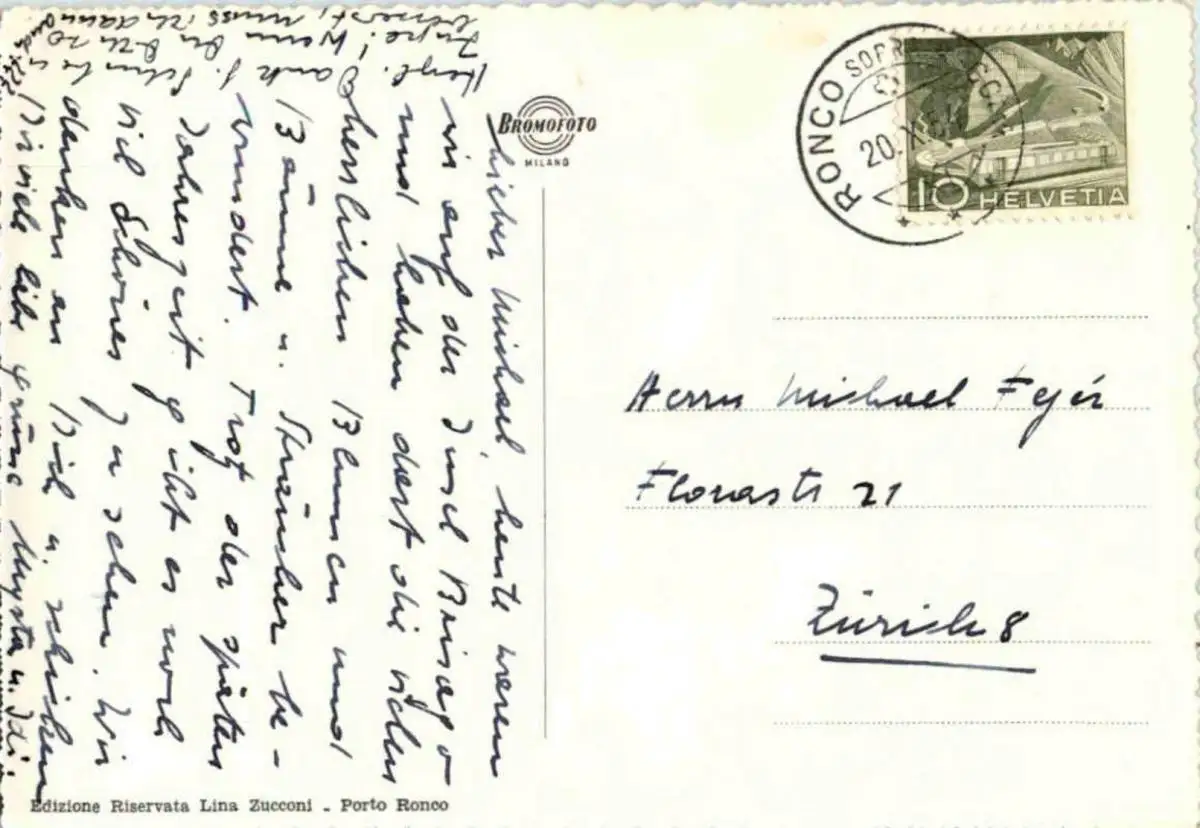 Lieber Michael, heute waren
wir auf der Insel Brisago
und haben dort die vielen
herrlichen Blumen und
Bäume u. Sträucher be-
wundert. Trotz der späten
Jahreszeit gibt es noch
viel Schönes zu sehen. Wir
denken an Dich u. schicken
Dir viele liebe Grüsse Mysta u. Idi.
Herzl. Dank f.
! Wenn Du
muss ich dann
BROMOFOTO
MILANO
RONCO SOPRA ASCONA
20. X.
10 HELVETIA
Herrn Michael Fejér
Florastr 21
Zürich 8
Edizione Riservata Lina Zucconi - Porto Ronco